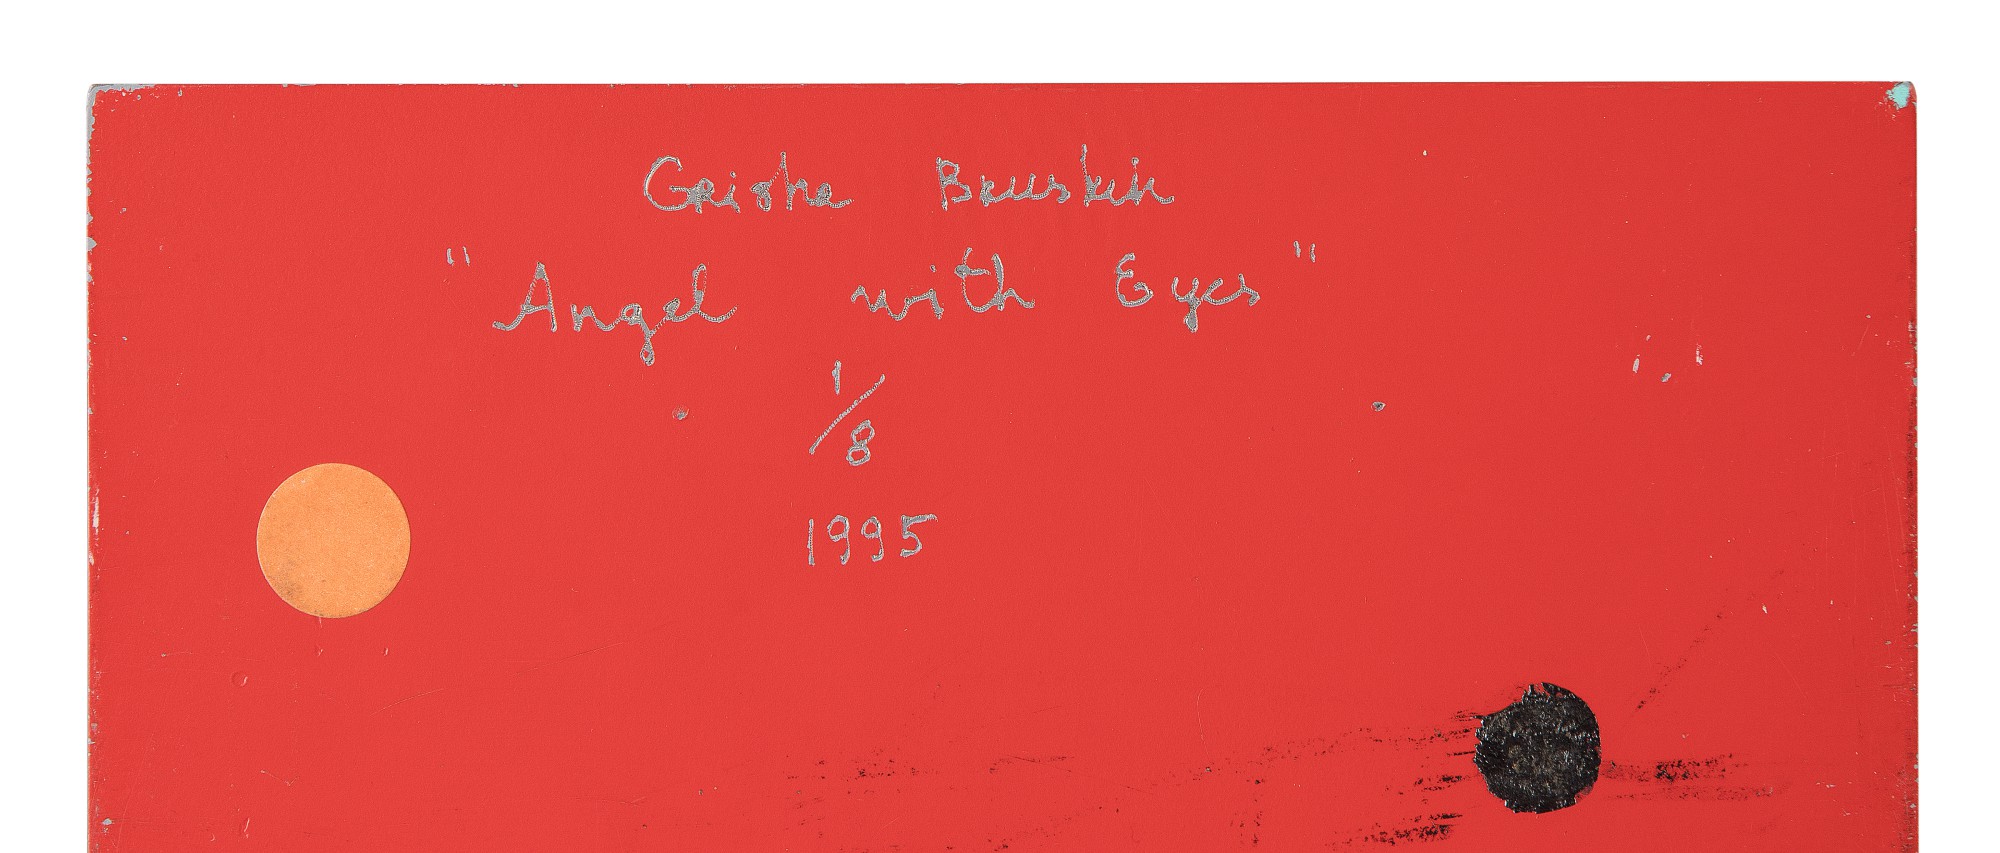 Grisha Bruskin
"Angel with Eyes"
1/8
1995